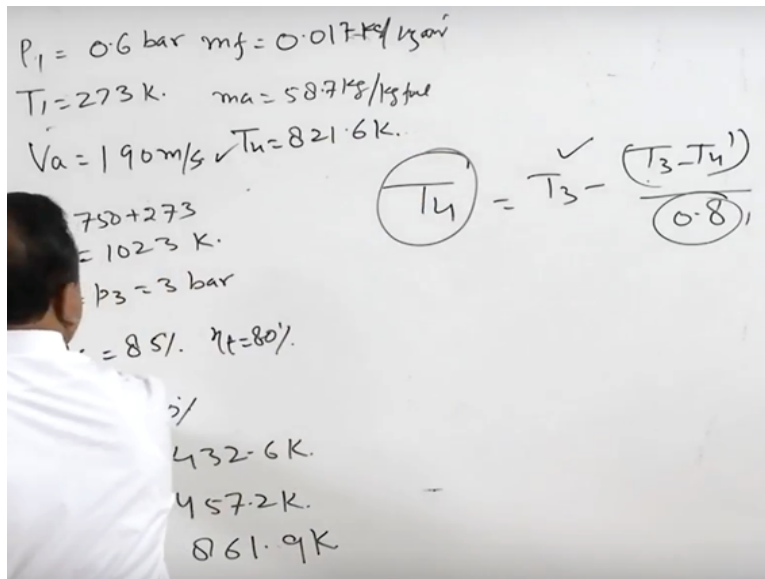 P1 = 0.6 bar mf = 0.017 kg/kg air
T1 = 273 K. ma = 58.7 kg/kg fuel
Va = 190 m/s ✓ T4 = 821.6 K.
750+273
= 1023 K.
P3 = 3 bar
= 85%. ηt = 80%.
%
432.6 K.
457.2 K.
861.9 K
T4' = T3 - (T3 - T4') / 0.8